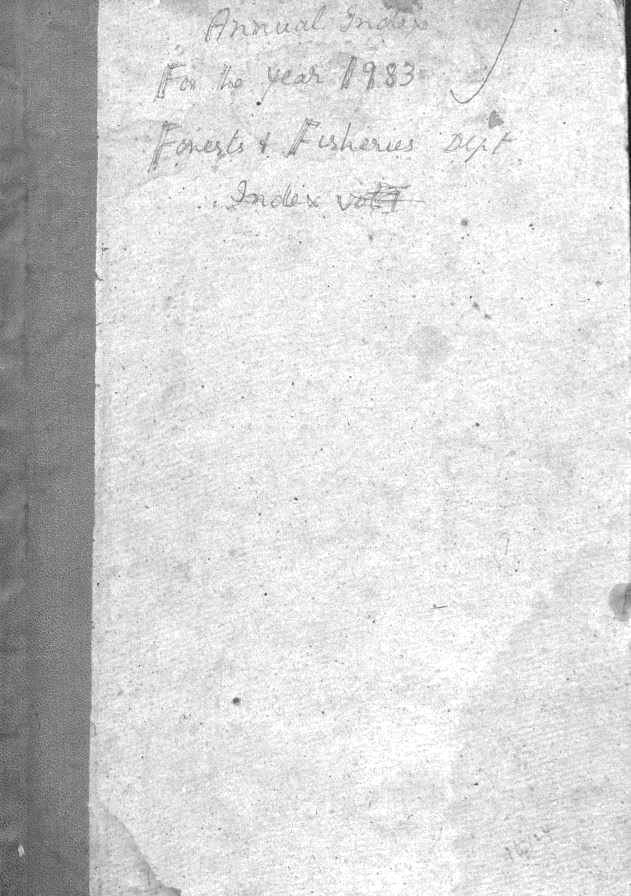 Annual Index
For the year 1983
Forests & Fisheries Dept.
Index vol I